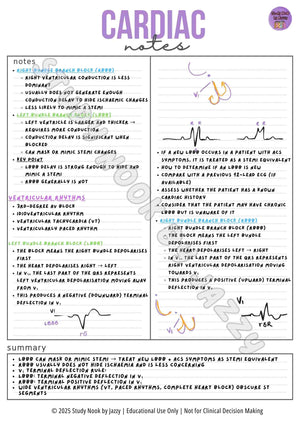 CARDIAC
notes
notes
• RIGHT BUNDLE BRANCH BLOCK (RBBB)
• RIGHT VENTRICULAR CONDUCTION IS LESS
DOMINANT
• USUALLY DOES NOT GENERATE ENOUGH
CONDUCTION DELAY TO HIDE ISCHAEMIC CHANGES
• LESS LIKELY TO MIMIC A STEMI
• LEFT BUNDLE BRANCH BLOCK (LBBB)
• LEFT VENTRICLE IS LARGER AND THICKER →
REQUIRES MORE CONDUCTION
• CONDUCTION DELAY IS SIGNIFICANT WHEN
BLOCKED
• CAN MASK OR MIMIC STEMI CHANGES
• KEY POINT
• LBBB DELAY IS STRONG ENOUGH TO HIDE AND
MIMIC A STEMI
• RBBB GENERALLY IS NOT
VENTRICULAR RHYTHMS
• 3RD-DEGREE AV BLOCK
• IDIOVENTRICULAR RHYTHM
• VENTRICULAR TACHYCARDIA (VT)
• VENTRICULARLY PACED RHYTHM
LEFT BUNDLE BRANCH BLOCK (LBBB)
• THE BLOCK MEANS THE RIGHT BUNDLE DEPOLARISES
FIRST
• THE HEART DEPOLARISES RIGHT → LEFT
• IN V₁, THE LAST PART OF THE QRS REPRESENTS
LEFT VENTRICULAR DEPOLARISATION MOVING AWAY
FROM V₁
• THIS PRODUCES A NEGATIVE (DOWNWARD) TERMINAL
DEFLECTION IN V₁
LBBB
V₁
V₁
• IF A NEW LBBB OCCURS IN A PATIENT WITH ACS
SYMPTOMS, IT IS TREATED AS A STEMI EQUIVALENT
• HOW TO DETERMINE IF AN LBBB IS NEW
• COMPARE WITH A PREVIOUS 12-LEAD ECG (IF
AVAILABLE)
• ASSESS WHETHER THE PATIENT HAS A KNOWN
CARDIAC HISTORY
• CONSIDER THAT THE PATIENT MAY HAVE CHRONIC
LBBB BUT IS UNAWARE OF IT
• RIGHT BUNDLE BRANCH BLOCK (RBBB)
• RIGHT BUNDLE BRANCH BLOCK (RBBB)
• THE BLOCK MEANS THE LEFT BUNDLE
DEPOLARISES FIRST
• THE HEART DEPOLARISES LEFT → RIGHT
• IN V₁, THE LAST PART OF THE QRS REPRESENTS
RIGHT VENTRICULAR DEPOLARISATION MOVING
TOWARDS V₁
• THIS PRODUCES A POSITIVE (UPWARD) TERMINAL
DEFLECTION IN V₁
V₁
summary
• LBBB CAN MASK OR MIMIC STEMI → TREAT NEW LBBB + ACS SYMPTOMS AS STEMI EQUIVALENT
• RBBB USUALLY DOES NOT HIDE ISCHAEMIA AND IS LESS CONCERNING
• V₁ TERMINAL DEFLECTION RULE:
• LBBB: TERMINAL NEGATIVE DEFLECTION IN V₁
• RBBB: TERMINAL POSITIVE DEFLECTION IN V₁
• WIDE VENTRICULAR RHYTHMS (VT, PACED RHYTHMS, COMPLETE HEART BLOCK) OBSCURE ST
SEGMENTS
© 2025 Study Nook by Jazzy | Educational Use Only | Not for Clinical Decision Making